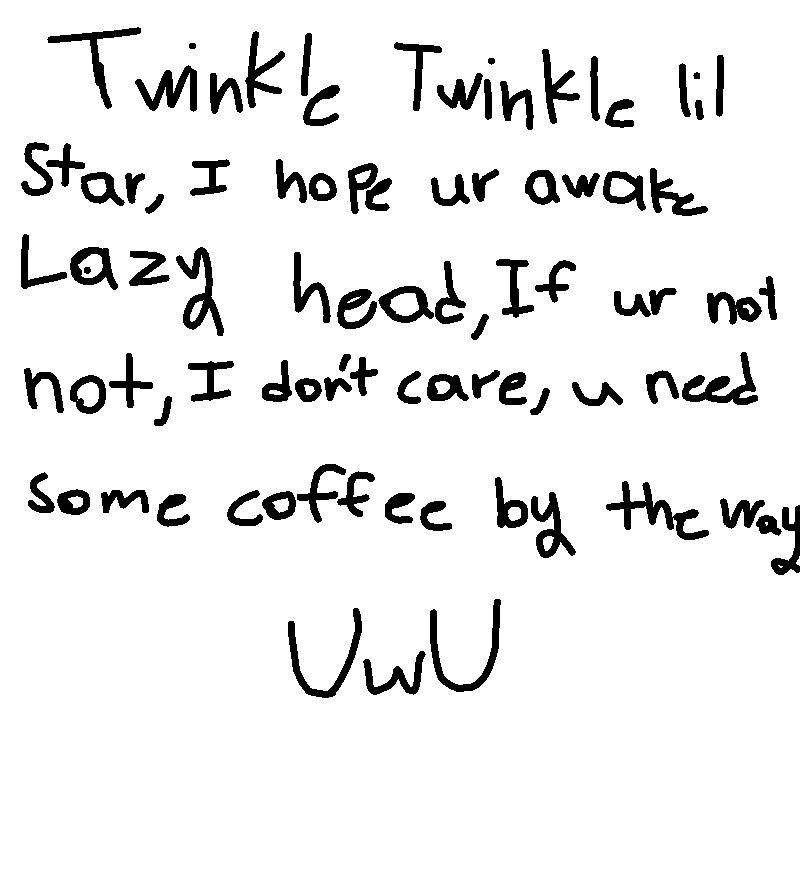 Twinkle Twinkle lil
Star, I hope ur awake
Lazy head, If ur not
not, I don't care, u need
some coffee by the way
UwU